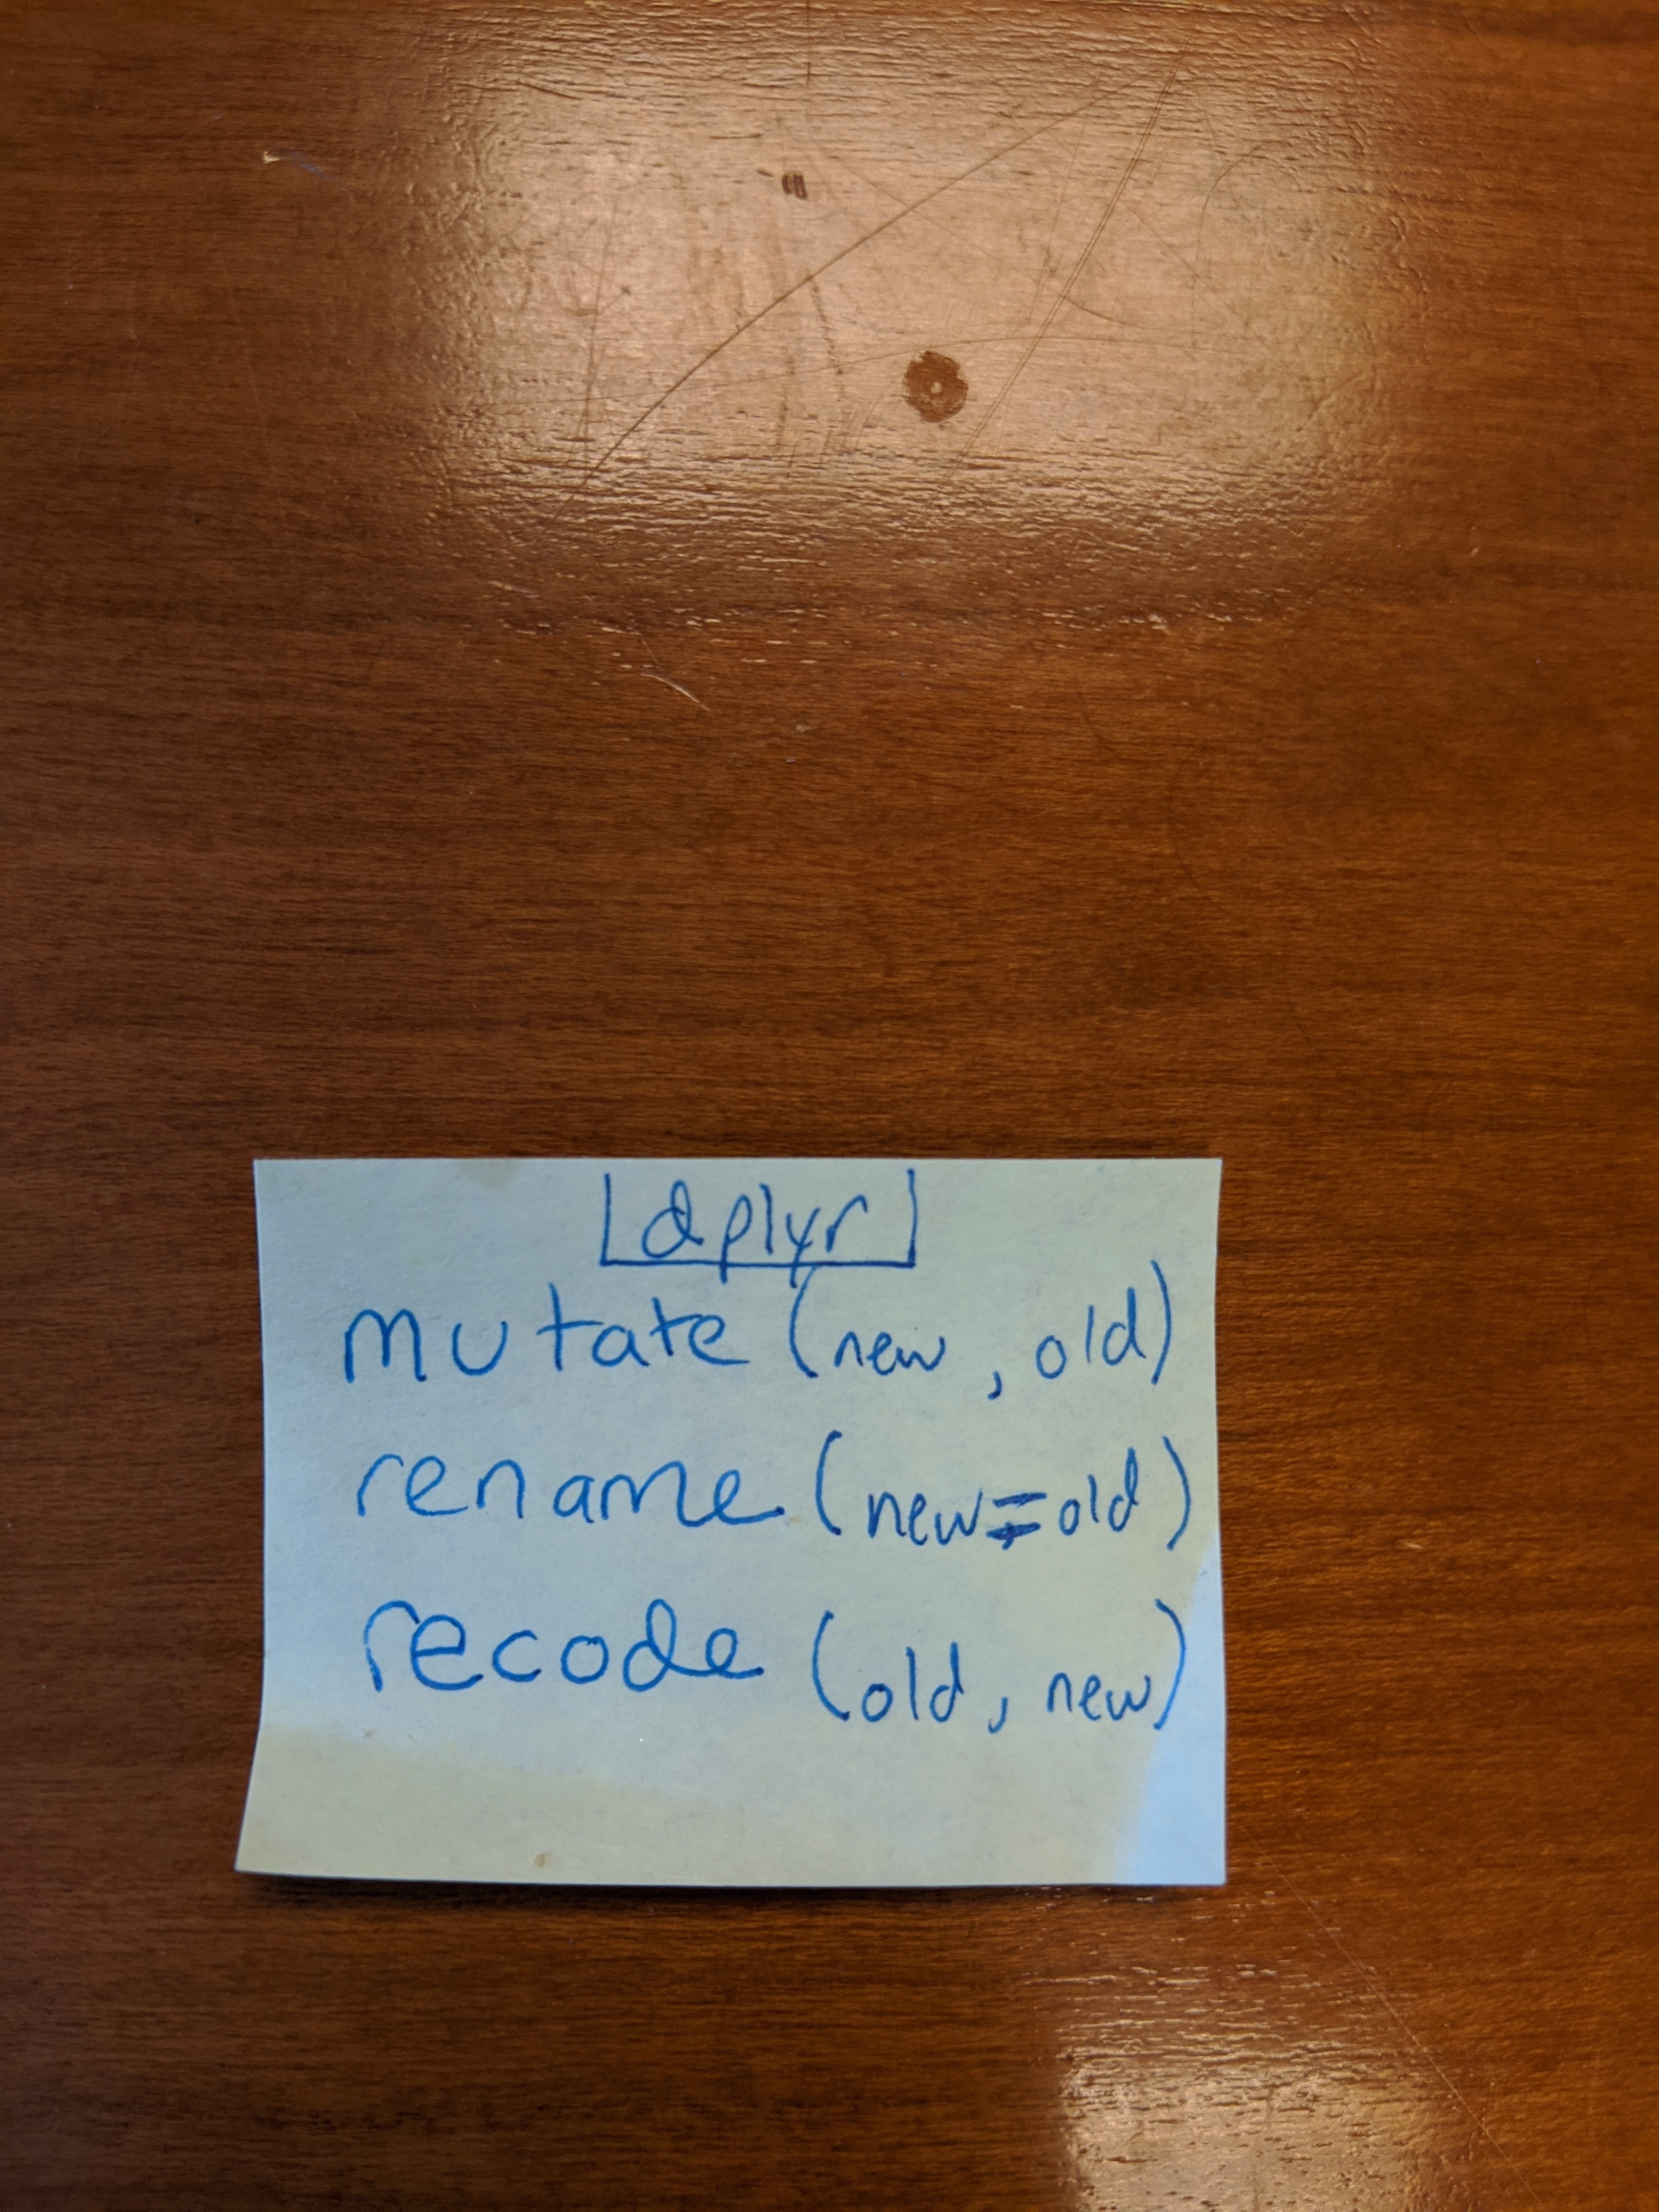 dplyr
mutate (new, old)
rename (new=old)
recode (old, new)